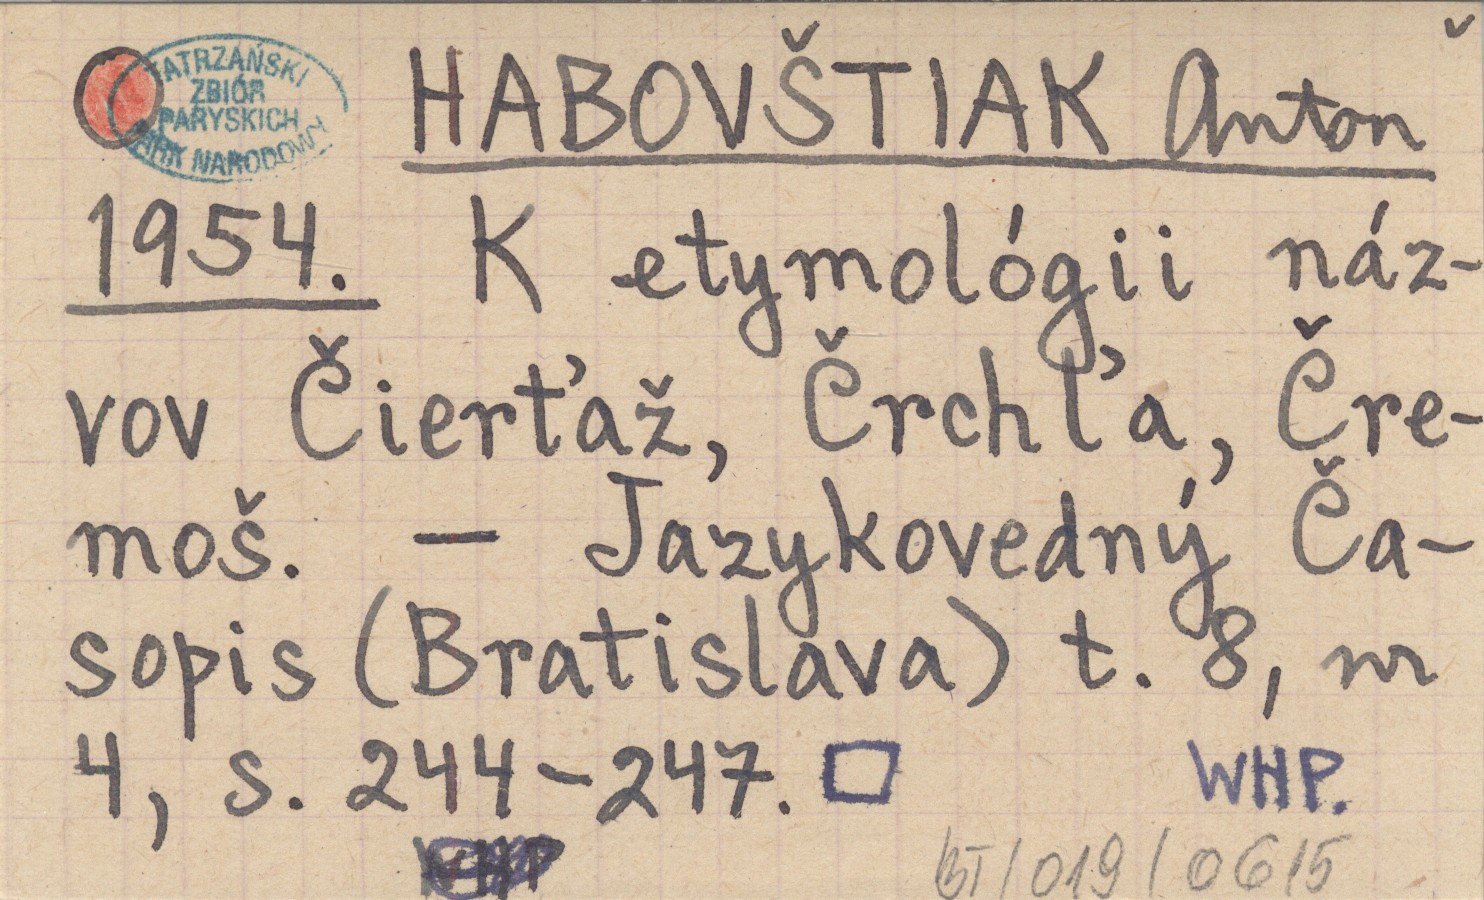 TATRZAŃSKI
ZBIÓR
PARYSKICH
PARK NARODOWY
HABOVŠTIAK Anton
1954. K etymológii náz-
vov Čierťaž, Črchľa, Čre-
moš. – Jazykovedný Ča-
sopis (Bratislava) t. 8, nr
4, s. 244–247. WHP.
WHP
BT/019/0615